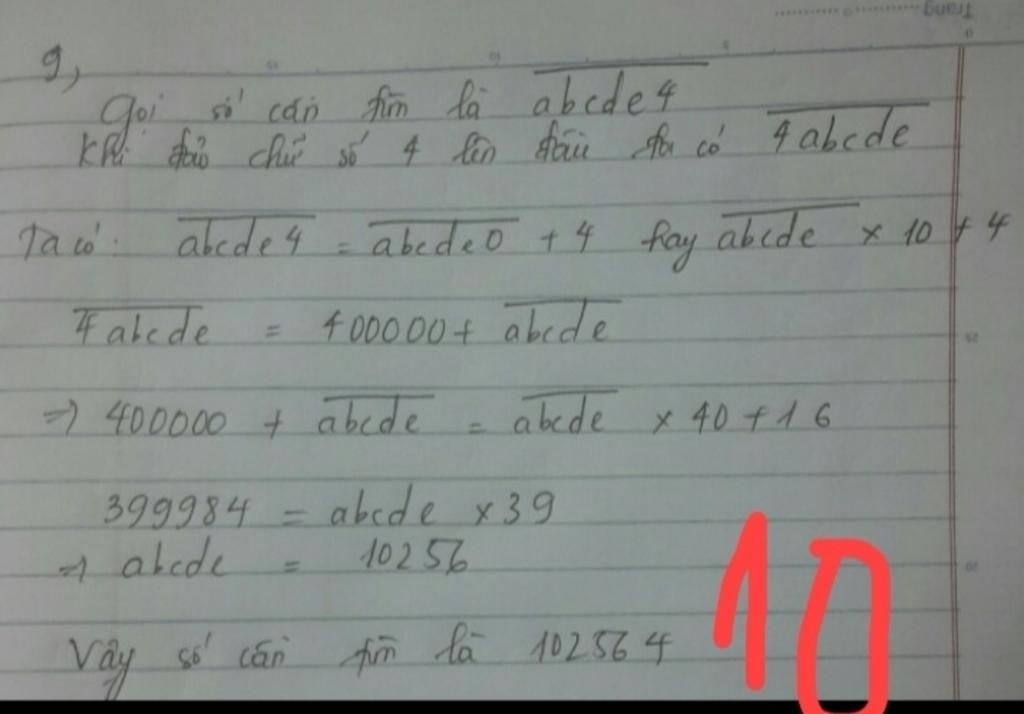 Trang
9,
Gọi số cần tìm là abcde4
Khi đảo chữ số 4 lên đầu ta có 4abcde
Ta có: abcde4 = abcde0 + 4 hay abcde × 10 + 4
4abcde = 400000 + abcde
=> 400000 + abcde = abcde × 40 + 16
399984 = abcde × 39
=> abcde = 10256
Vậy số cần tìm là 102564
10